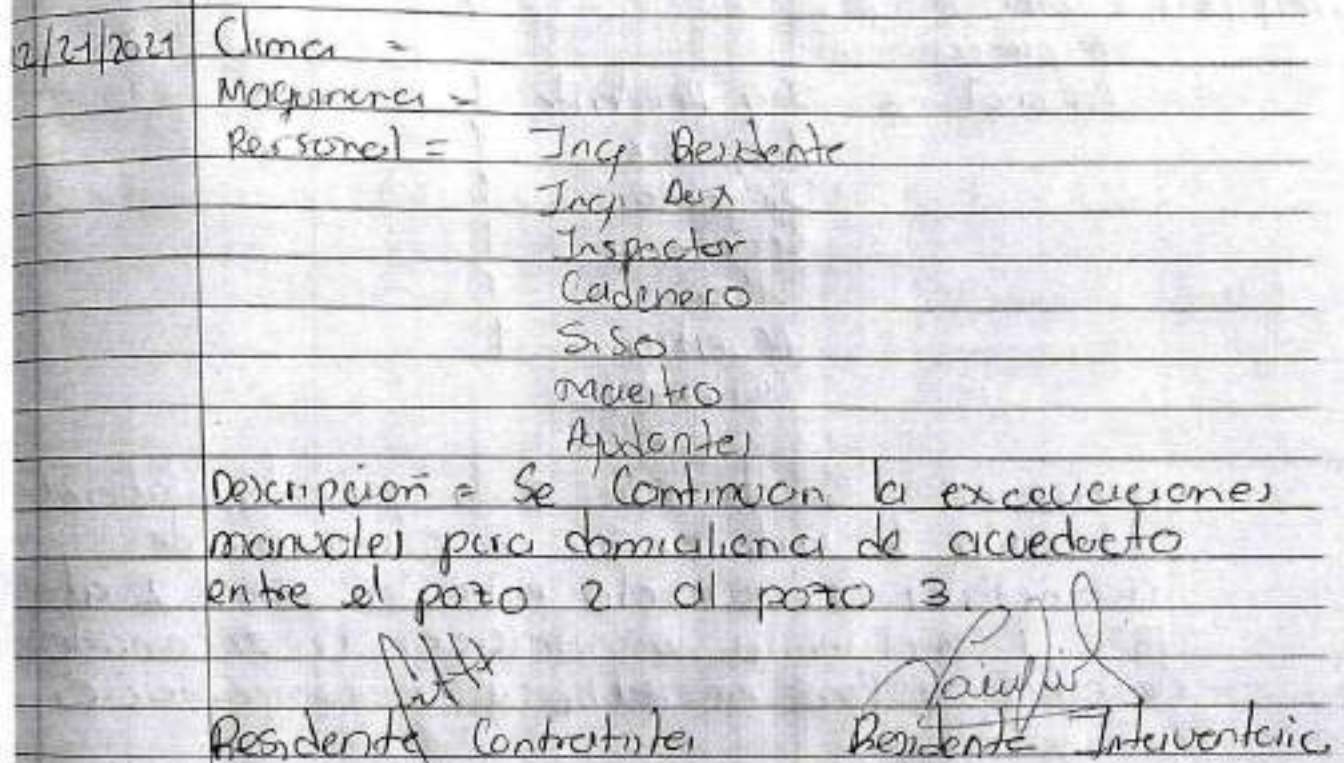 2/21/2021 Clima =
Maquinaria =
Personal = Ing Residente
Ing Aux
Inspector
Cadenero
SiSo
Maestro
Ayudantes
Descripción = Se Continuan la excavaciones
manuales para domiciliaria de acueducto
entre el pozo 2 al pozo 3.
Residente Contratista Residente Interventoria